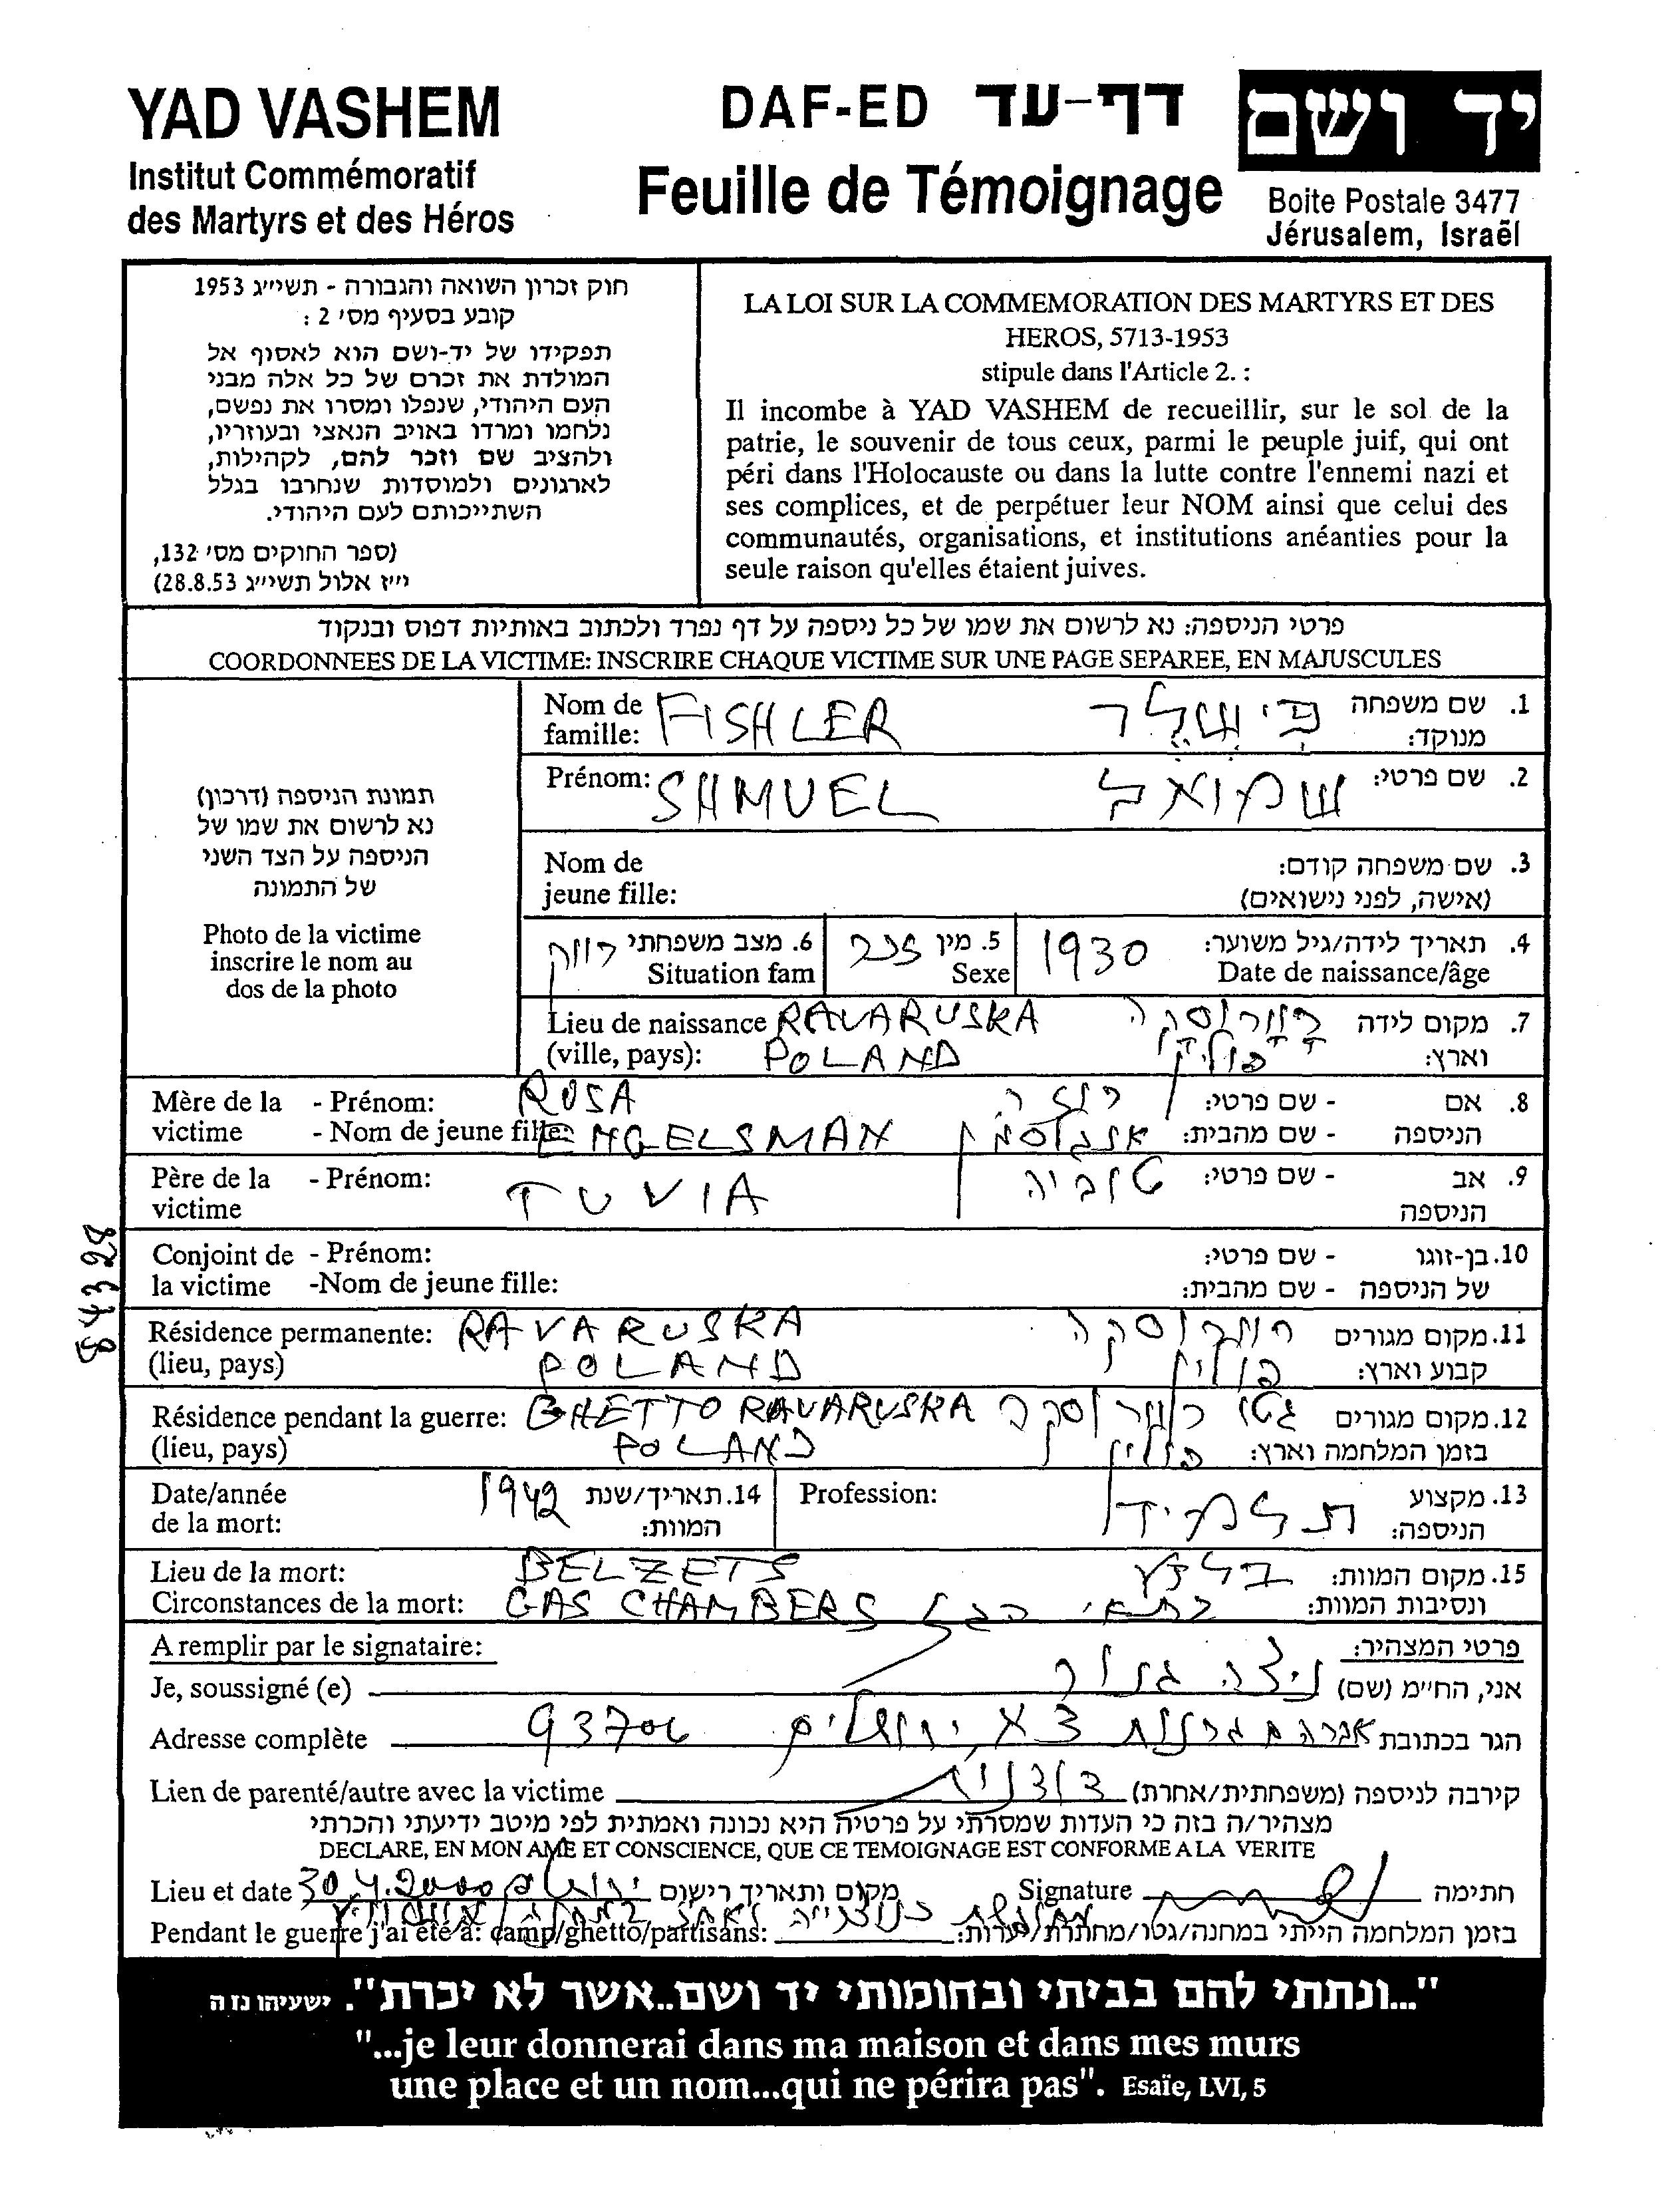 YAD VASHEM
Institut Commémoratif
des Martyrs et des Héros
DAF-ED דף-עד
Feuille de Témoignage
יד ושם
Boite Postale 3477
Jérusalem, Israël
חוק זכרון השואה והגבורה - תשי״ג 1953
קובע בסעיף מס׳ 2 :
תפקידו של יד-ושם הוא לאסוף אל
המולדת את זכרם של כל אלה מבני
העם היהודי, שנפלו ומסרו את נפשם,
נלחמו ומרדו באויב הנאצי ובעוזריו,
ולהציב שם וזכר להם, לקהילות,
לארגונים ולמוסדות שנחרבו בגלל
השתייכותם לעם היהודי.
(ספר החוקים מס׳ 132,
י״ז אלול תשי״ג 28.8.53)
LA LOI SUR LA COMMEMORATION DES MARTYRS ET DES
HEROS, 5713-1953
stipule dans l'Article 2. :
Il incombe à YAD VASHEM de recueillir, sur le sol de la
patrie, le souvenir de tous ceux, parmi le peuple juif, qui ont
péri dans l'Holocauste ou dans la lutte contre l'ennemi nazi et
ses complices, et de perpétuer leur NOM ainsi que celui des
communautés, organisations, et institutions anéanties pour la
seule raison qu'elles étaient juives.
פרטי הניספה: נא לרשום את שמו של כל ניספה על דף נפרד ולכתוב באותיות דפוס ובנקוד
COORDONNEES DE LA VICTIME: INSCRIRE CHAQUE VICTIME SUR UNE PAGE SEPAREE, EN MAJUSCULES
תמונת הניספה (דרכון)
נא לרשום את שמו של
הניספה על הצד השני
של התמונה
Photo de la victime
inscrire le nom au
dos de la photo
Nom de famille: FISHLER פישלר 1. שם משפחה מנוקד:
Prénom: SHMUEL שמואל 2. שם פרטי:
Nom de jeune fille: 3. שם משפחה קודם: (אישה, לפני נישואים)
רווק 6. מצב משפחתי Situation fam זכר 5. מין Sexe 1930 4. תאריך לידה/גיל משוער: Date de naissance/âge
Lieu de naissance RAVARUSKA רוורוסקה 7. מקום לידה
(ville, pays): POLAND פולין וארץ:
Mère de la - Prénom: ROSA רוזה - שם פרטי: 8. אם
victime - Nom de jeune fille: ENGELSMAN אנגלסמן - שם מהבית: הניספה
Père de la - Prénom: TUVIA טוביה - שם פרטי: 9. אב
victime הניספה
84328
Conjoint de - Prénom: - שם פרטי: 10. בן-זוגו
la victime -Nom de jeune fille: - שם מהבית: של הניספה
Résidence permanente: RAVARUSKA רוורוסקה 11. מקום מגורים
(lieu, pays) POLAND פולין קבוע וארץ:
Résidence pendant la guerre: GHETTO RAVARUSKA גטו רוורוסקה 12. מקום מגורים
(lieu, pays) POLAND פולין בזמן המלחמה וארץ:
Date/année de la mort: 1942 14. תאריך/שנת המוות:
Profession: תלמיד 13. מקצוע הניספה:
Lieu de la mort: BELZETS בלזץ 15. מקום המוות:
Circonstances de la mort: GAS CHAMBERS בתאי הגז ונסיבות המוות:
A remplir par le signataire: פרטי המצהיר:
Je, soussigné (e) ניצה גלר אני, החי״מ (שם)
Adresse complète 93706 ירושלים הגר בכתובת
Lien de parenté/autre avec la victime קירבה לניספה (משפחתית/אחרת)
מצהיר/ה בזה כי העדות שמסרתי על פרטיה היא נכונה ואמתית לפי מיטב ידיעתי והכרתי
DECLARE, EN MON AME ET CONSCIENCE, QUE CE TEMOIGNAGE EST CONFORME A LA VERITE
Lieu et date 30.4.2000 ירושלים מקום ותאריך רישום Signature חתימה
Pendant le guerre j'ai été à: camp/ghetto/partisans: בזמן המלחמה הייתי במחנה/גטו/מחתרת/יערות:
"...ונתתי להם בביתי ובחומותי יד ושם..אשר לא יכרת". ישעיהו נו ה
"...je leur donnerai dans ma maison et dans mes murs
une place et un nom...qui ne périra pas". Esaïe, LVI, 5